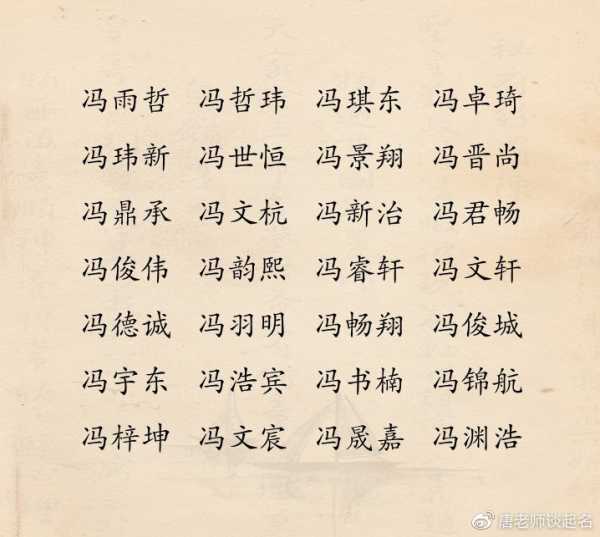 冯雨哲 冯哲玮 冯琪东 冯卓琦
冯玮新 冯世恒 冯景翔 冯晋尚
冯鼎承 冯文杭 冯新治 冯君畅
冯俊伟 冯韵熙 冯睿轩 冯文轩
冯德诚 冯羽明 冯畅翔 冯俊城
冯宇东 冯浩宾 冯书楠 冯锦航
冯梓坤 冯文宸 冯晟嘉 冯渊浩
唐老师谈起名